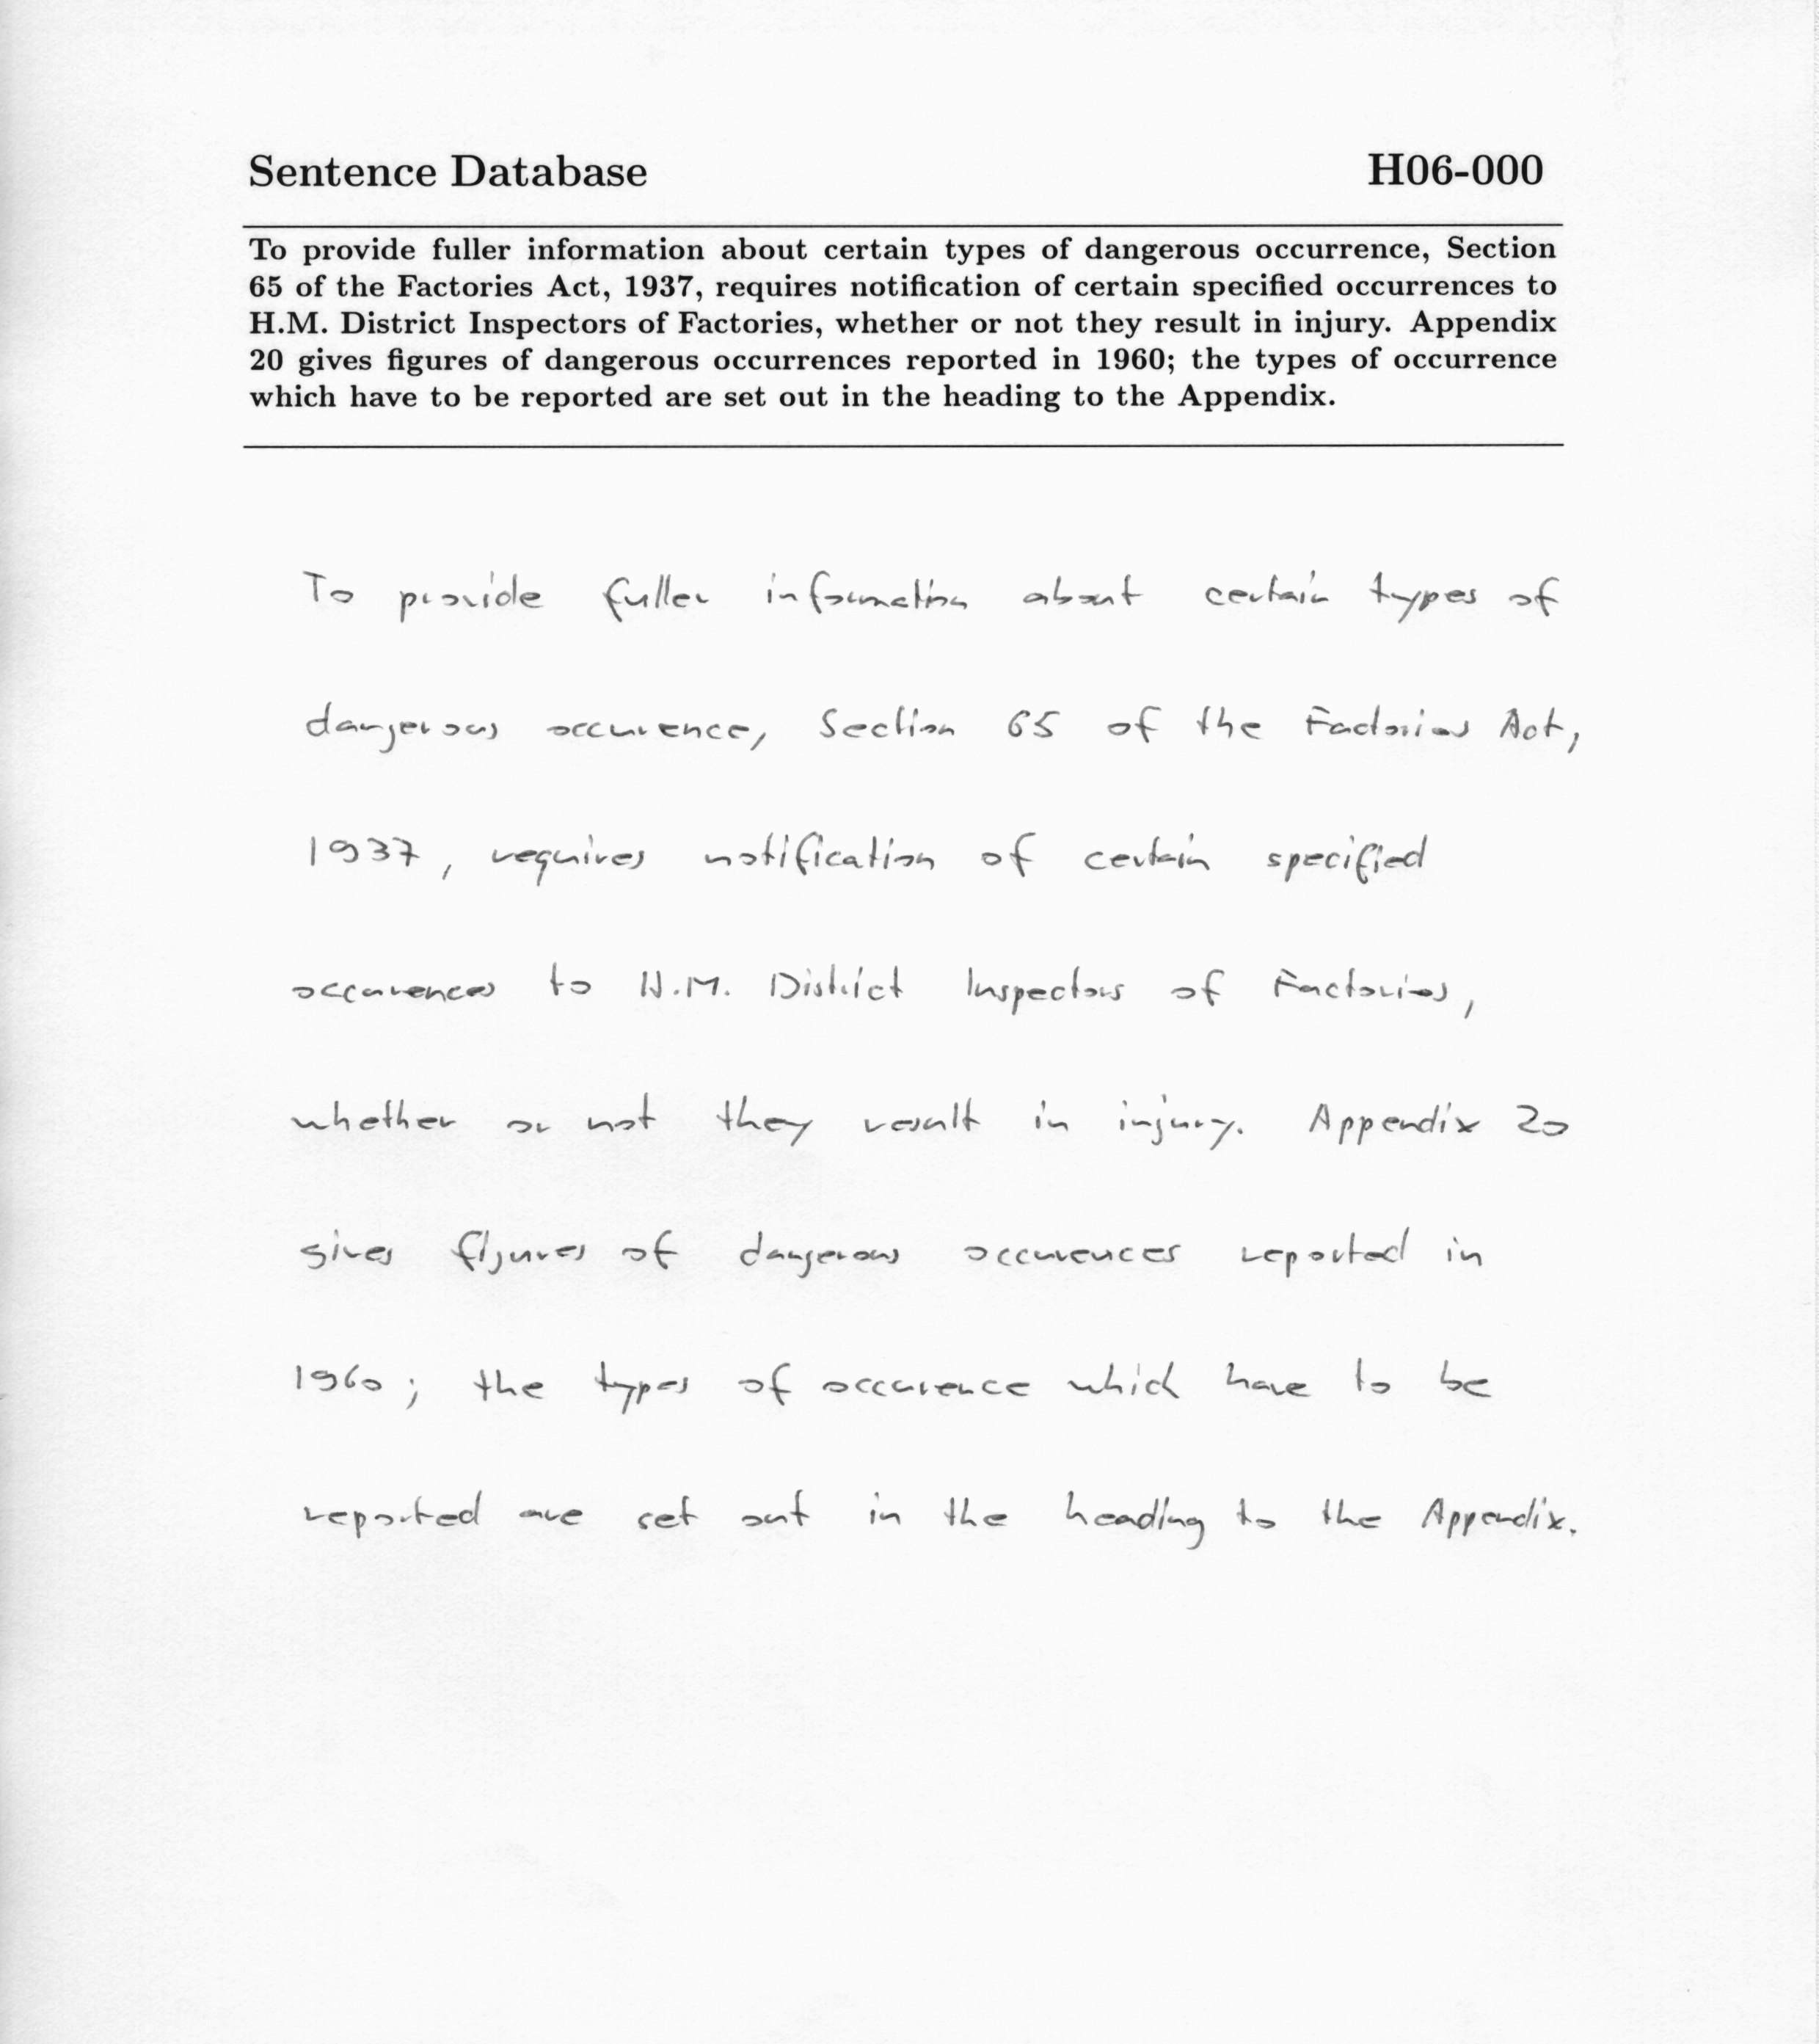 Sentence Database H06-000
To provide fuller information about certain types of dangerous occurrence, Section
65 of the Factories Act, 1937, requires notification of certain specified occurrences to
H.M. District Inspectors of Factories, whether or not they result in injury. Appendix
20 gives figures of dangerous occurrences reported in 1960; the types of occurrence
which have to be reported are set out in the heading to the Appendix.
To provide fuller information about certain types of
dangerous occurence, Section 65 of the Factories Act,
1937, requires notification of certain specified
occurences to H.M. District Inspectors of Factories,
whether or not they result in injury. Appendix 20
gives figures of dangerous occurences reported in
1960; the types of occurence which have to be
reported are set out in the heading to the Appendix.